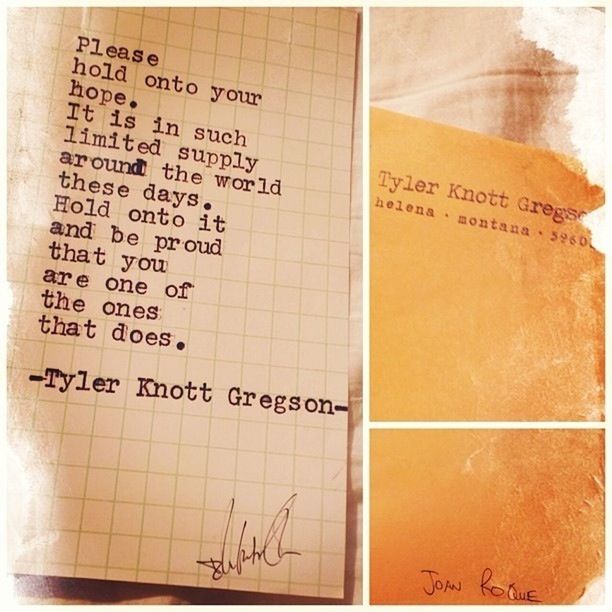 Please
hold onto your
hope.
It is in such
limited supply
around the world
these days.
Hold onto it
and be proud
that you
are one of
the ones
that does.
-Tyler Knott Gregson-
Tyler Knott Gregso
helena · montana · 5960
JOAN ROQUE